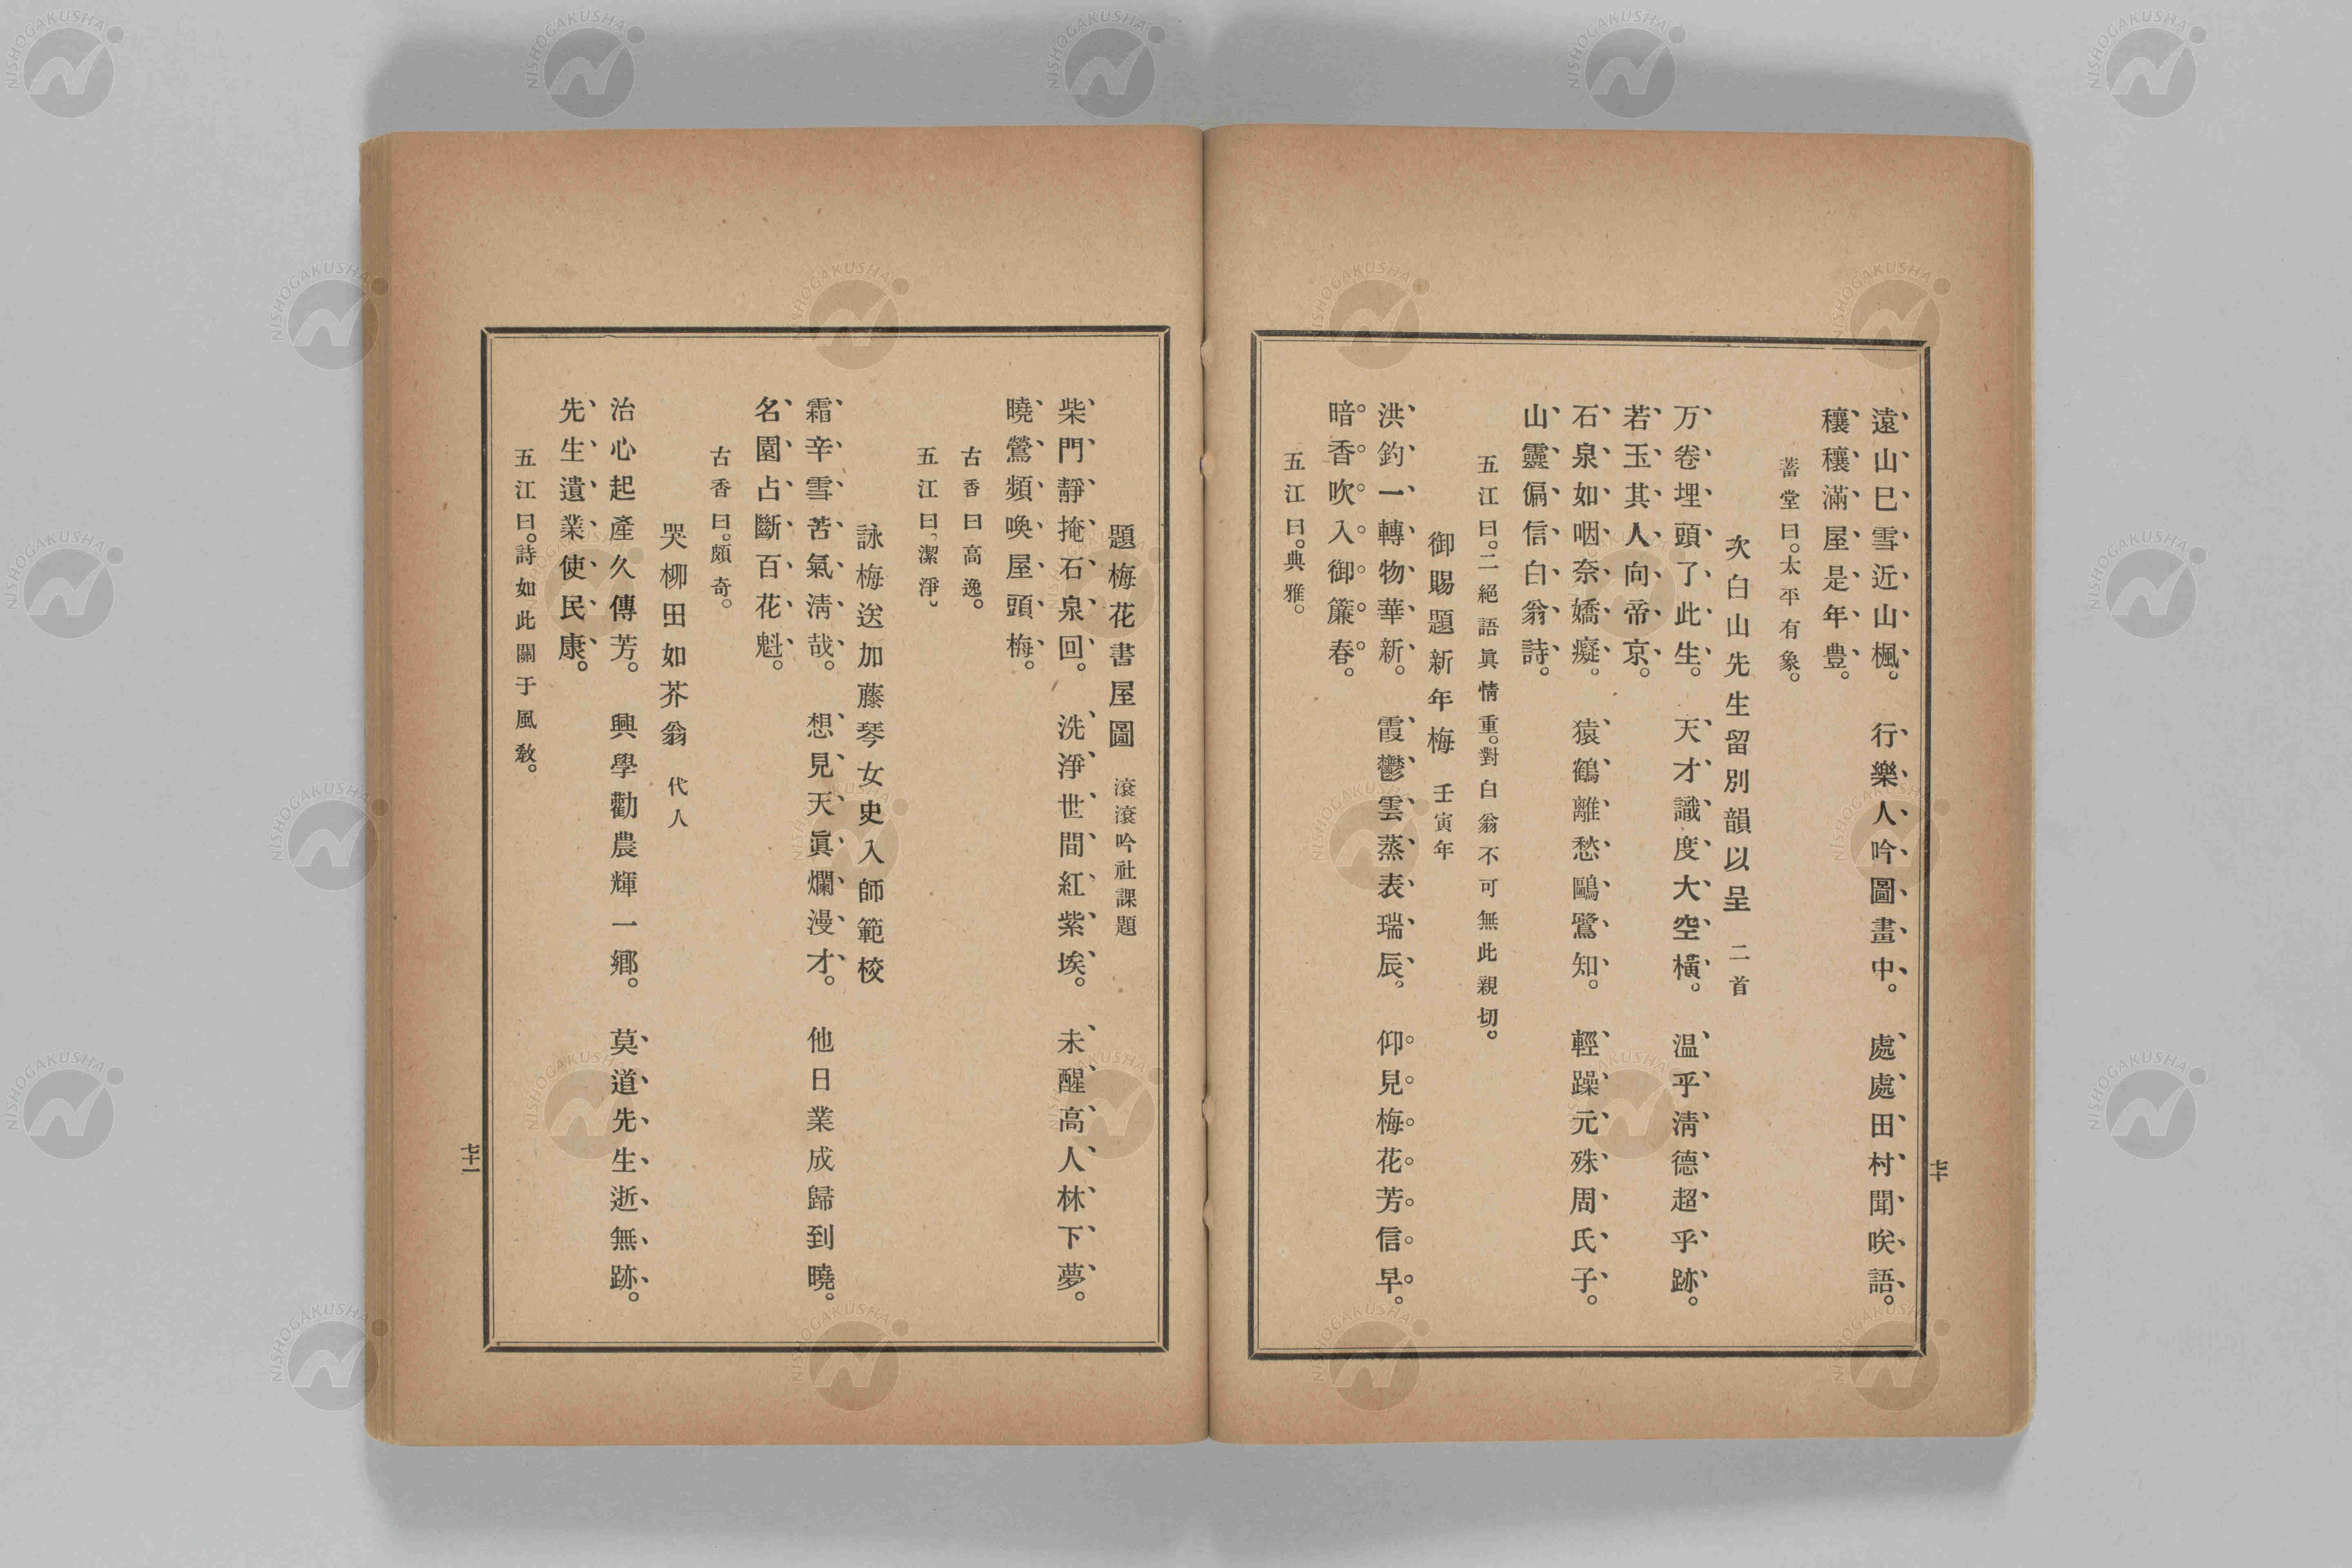 遠山巳雪近山楓。行樂人吟圖畫中。處處田村聞咲語。
穰穰滿屋是年豊。
蓄堂曰。太平有象。
次白山先生留別韻以呈 二首
万卷埋頭了此生。天才識度大空橫。温乎淸德超乎跡。
若玉其人向帝京。
石泉如咽奈嬌癡。猿鶴離愁鷗鷺知。輕躁元殊周氏子。
山靈偏信白翁詩。
五江曰。二絕語眞情重。對白翁不可無此親切。
御賜題新年梅 壬寅年
洪鈞一轉物華新。霞鬱雲蒸表瑞辰。仰見梅花芳信早。
暗香吹入御簾春。
五江曰。典雅。
七十
題梅花書屋圖 滾滾吟社課題
柴門靜掩石泉回。洗淨世間紅紫埃。未醒高人林下夢。
曉鶯頻喚屋頭梅。
古香曰高逸。
五江曰、潔淨、
詠梅送加藤琴女史入師範校
霜辛雪苦氣淸哉。想見天眞爛漫才。他日業成歸到曉。
名園占斷百花魁。
古香曰。頗奇。
哭柳田如芥翁 代人
治心起產久傳芳。興學勸農輝一鄕。莫道先生逝無跡。
先生遺業使民康。
五江曰。詩如此關于風敎。
七十一
NISHOGAKUSHA